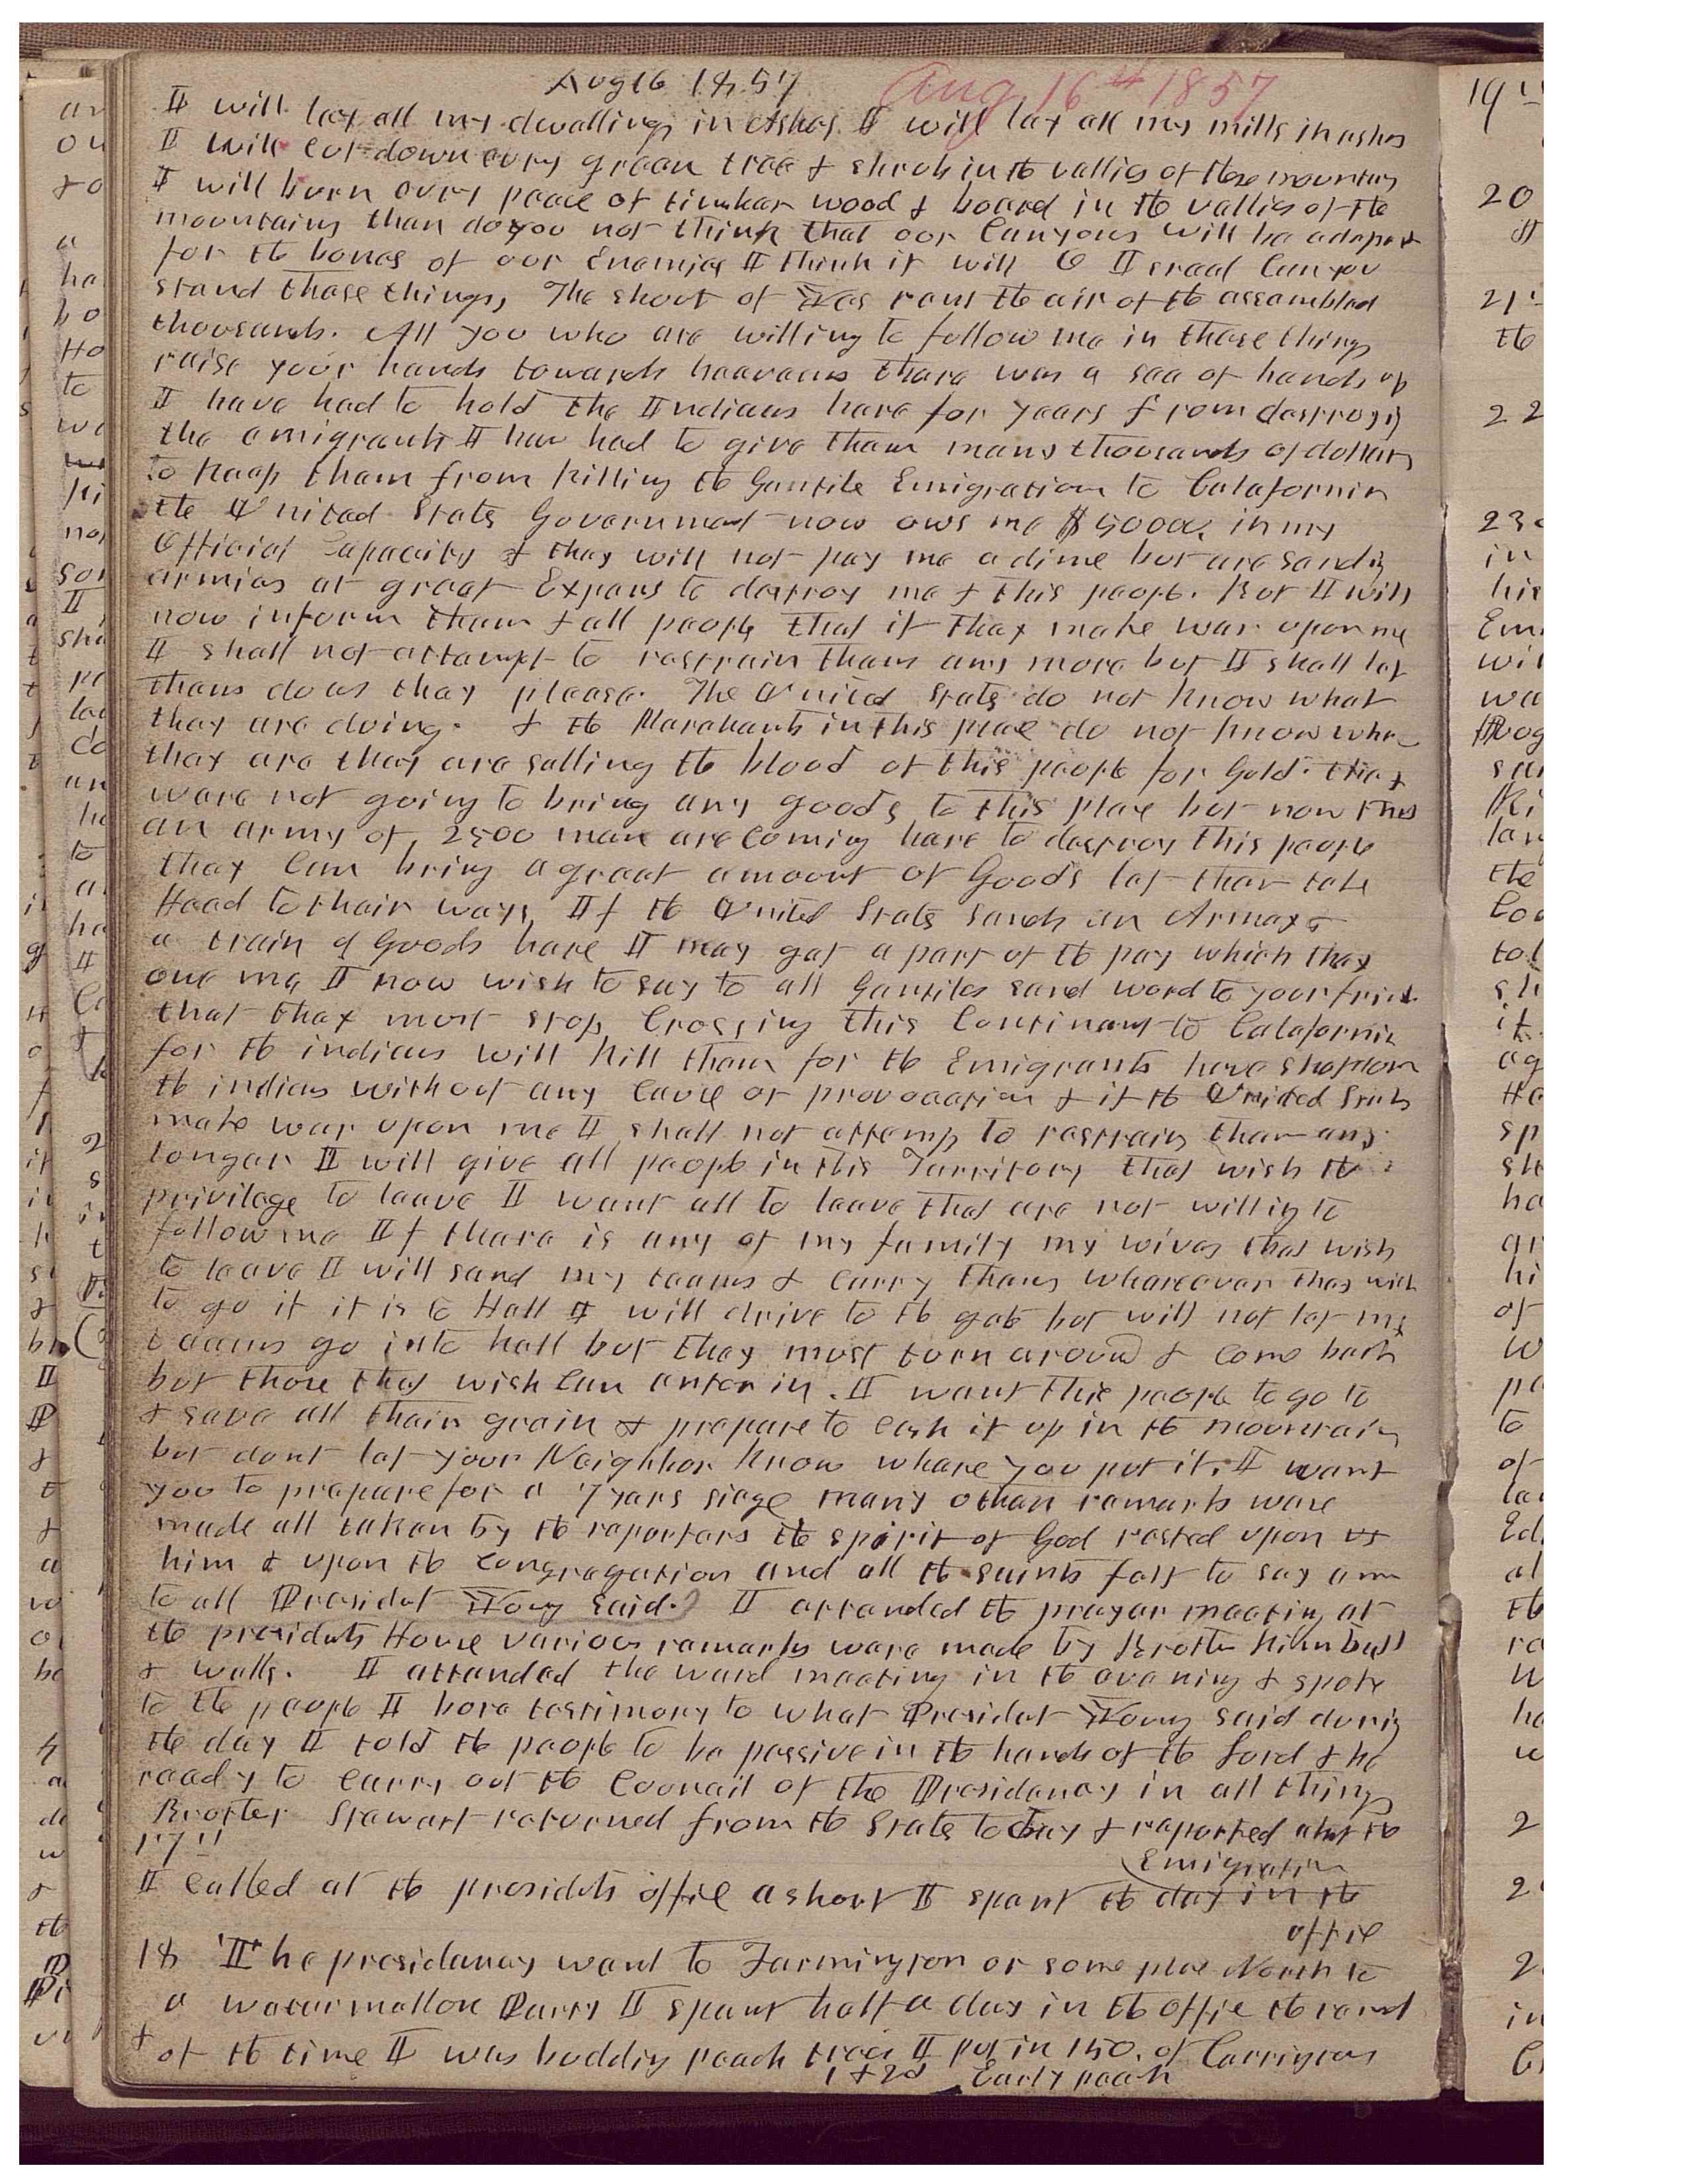 Aug 16 1857 Aug 16th 1857
I will lay all my dwellings in Ashes I will lay all my mills in ashes
I will cut down evry green tree & shrub in the vallies of these mountains
I will burn evry peace of timber wood & board in the vallies of the
mountains then do you not think that our Canyons will be adapted
for the bones of our Enemies I think it will O Israel Can you
stand these things, The shout of Yes rent the air of the assembled
thousands. All you who are willing to follow me in these things
raise your hands towards heavens there was a sea of hands up
I have had to hold the Indians here for years from destroyig
the emigrants I hav had to give them many thousands of dollars
to keep them from killing the Gentile Emigration to Calafornia
the United States Government now ows me $ in my
Official Capacity & they will not pay me a dime but are sendig
armies at great Expens to destroy me & this peopl. But I will
now inform them & all people that if they make war upon me
I shall not attempt to restrain them any more but I shall let
them do as they please. The United States do not know what
they are doing. & the Marchants in this place do not know who
they are they are selling the blood of this people for Gold. they
were not going to bring any goods to this place but now that
an army of 2500 men are Coming here to destroy this people
they Can bring a great amount of Goods let them take
Heed to their ways, If the United States sends an Army &
a train of Goods here I may get a part of the pay which they
owe me I now wish to say to all Gentiles send word to your friends
that they must stop Crossing this Continant to Calafornia
for the indians will kill them for the Emigrants have shot down
the indians without any Cause or provocation & if the United States
make war upon me I shall not attemp to restrain them any
longer I will give all people in this Territory that wish the
privilege to leave I want all to leave that are not willig to
follow me If there is any of my family my wives that wish
to leave I will send my teams & Carry them whareever they wish
to go if it is to Hell I will drive to the gate but will not let my
teams go into hell but they must turn around & Come back
but those that wish Can enter in. I want this people to go to
& save all their grain & prepare to Cash it up in the mountains
but dont let your Neighbor know whare you put it. I want
you to prepare for a 7 years siege many other remarks were
made all taken by the reporters the spirit of God rested upon us
him & upon the Congregation and all the saints felt to say amen
to all Presidet Young said. I attended the prayer meeting at
the presidets House various remarks were made by Brother Kimball
& Wells. I attended the ward meeting in the evening & spoke
to the people I bore testimony to what Presidet Young said durig
the day I told the people to be passive in the hands of the Lord & be
ready to Carry out the Council of the Presidency in all things
Brother Stewart returned from the States to day & reported about the
17th Emigration
I Called at the presidets office a short I spent the day in the
office
18 The presidency went to Farmington or some place North to
a water mellon Party I spent half a day in the office the rest
& of the time I was buddig peach trees I put in 150. of Carringtons
1 & 2d Early peach